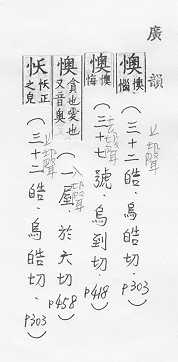 廣韻
懊 懊惱(三十二皓.烏皓切.p303)
上聲
懊 懊悔(三十七號.烏到切.p418)
去聲
懊 貪也愛也又音奧(一屋.於六切.p458)
入聲
正之皃(三十二皓.烏皓切.p303)
上聲